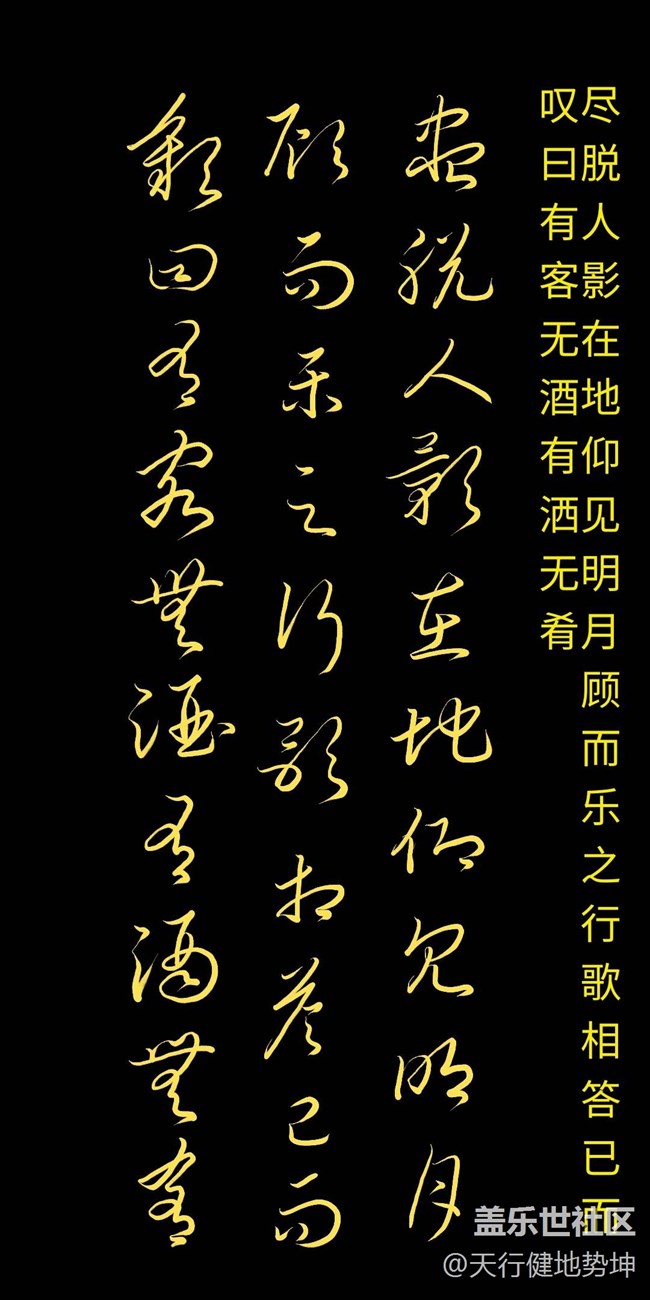 尽脱人影在地仰见明月顾而乐之行歌相答已而
叹曰有客无酒有洒无肴
盡脱人影在地仰見明月
顧而樂之行歌相答已而
歎曰有客無酒有酒無肴
盖乐世社区
@天行健地势坤